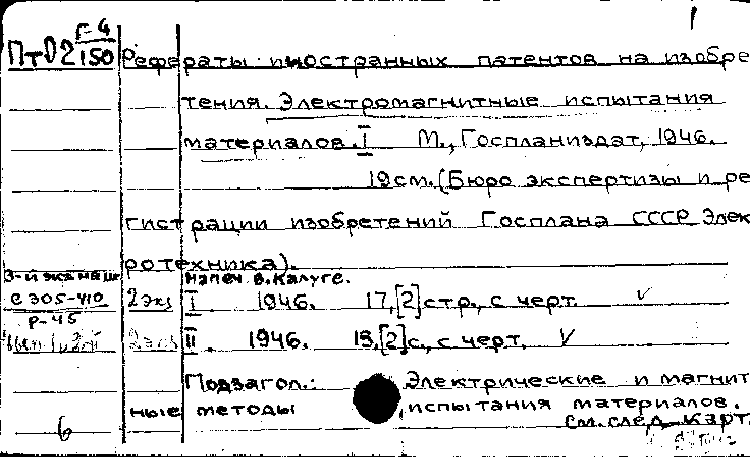 1
ПтО2 Г-4/150 Рефераты иностранных патентов на изобре
тения. Электромагнитные испытания
материалов. I М., Госпланиздат, 1946.
19см. (Бюро экспертизы и ре
гистрации изобретений Госплана СССР Элек
ротехника).
3-й экз на шк Напеч. в. Калуге.
С 305-410 2экз I 1946. 17,[2]стр., с черт. V
Р-45
2экз II. 1946. 18,[2]с., с черт. V
Подзагол.: Электрические и магнит
ные методы испытания материалов.
6 см. след. карт.